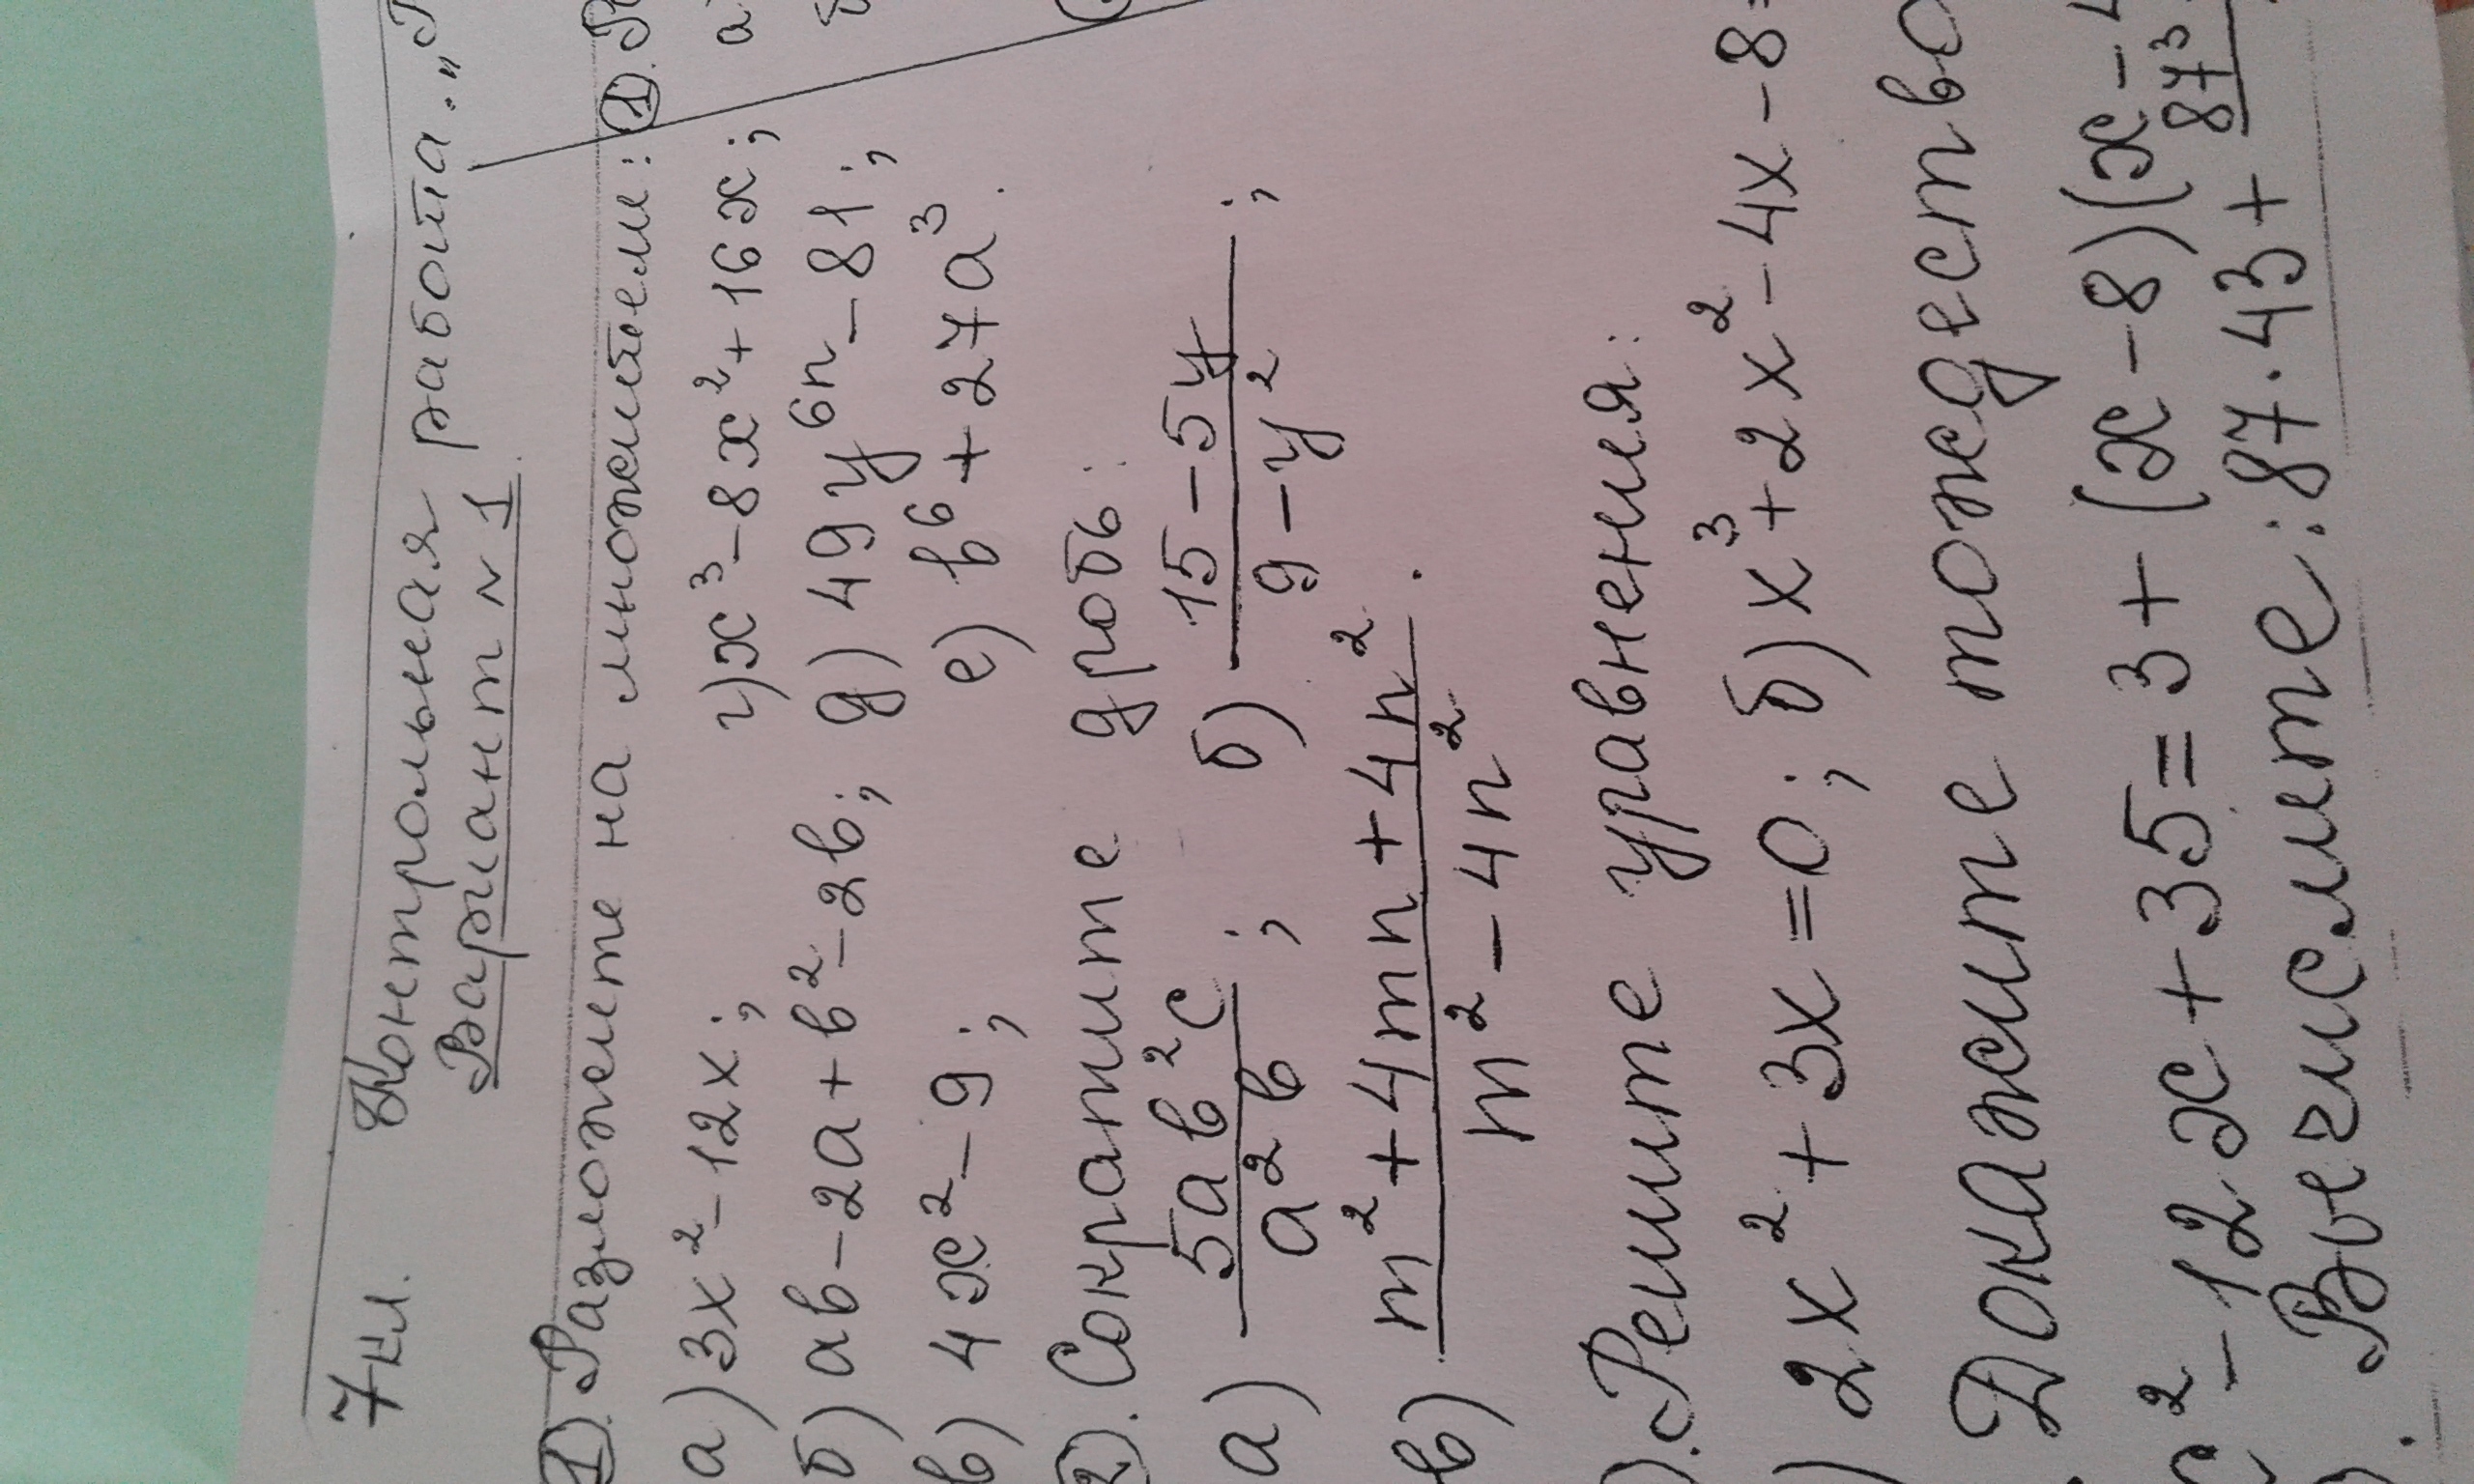 7 кл. Контрольная работа. „Р
Вариант № 1
1). Разложите на множители:
а) 3x² - 12x; г) x³ - 8x² + 16x;
б) ab - 2a + b² - 2b; д) 49y⁶ⁿ - 81;
в) 4x² - 9; е) b⁶ + 27a³.
2). Сократите дробь:
а) 5ab²c / a²b ; б) 15 - 5y / 9 - y² ;
в) m² + 4mn + 4n² / m² - 4n² .
). Решите уравнения:
) 2x² + 3x = 0; б) x³ + 2x² - 4x - 8 =
Докажите тождество
² - 12x + 35 = 3 + (x - 8)(x - 4
). Вычислите: 87 · 43 + 87³
1).
а
б